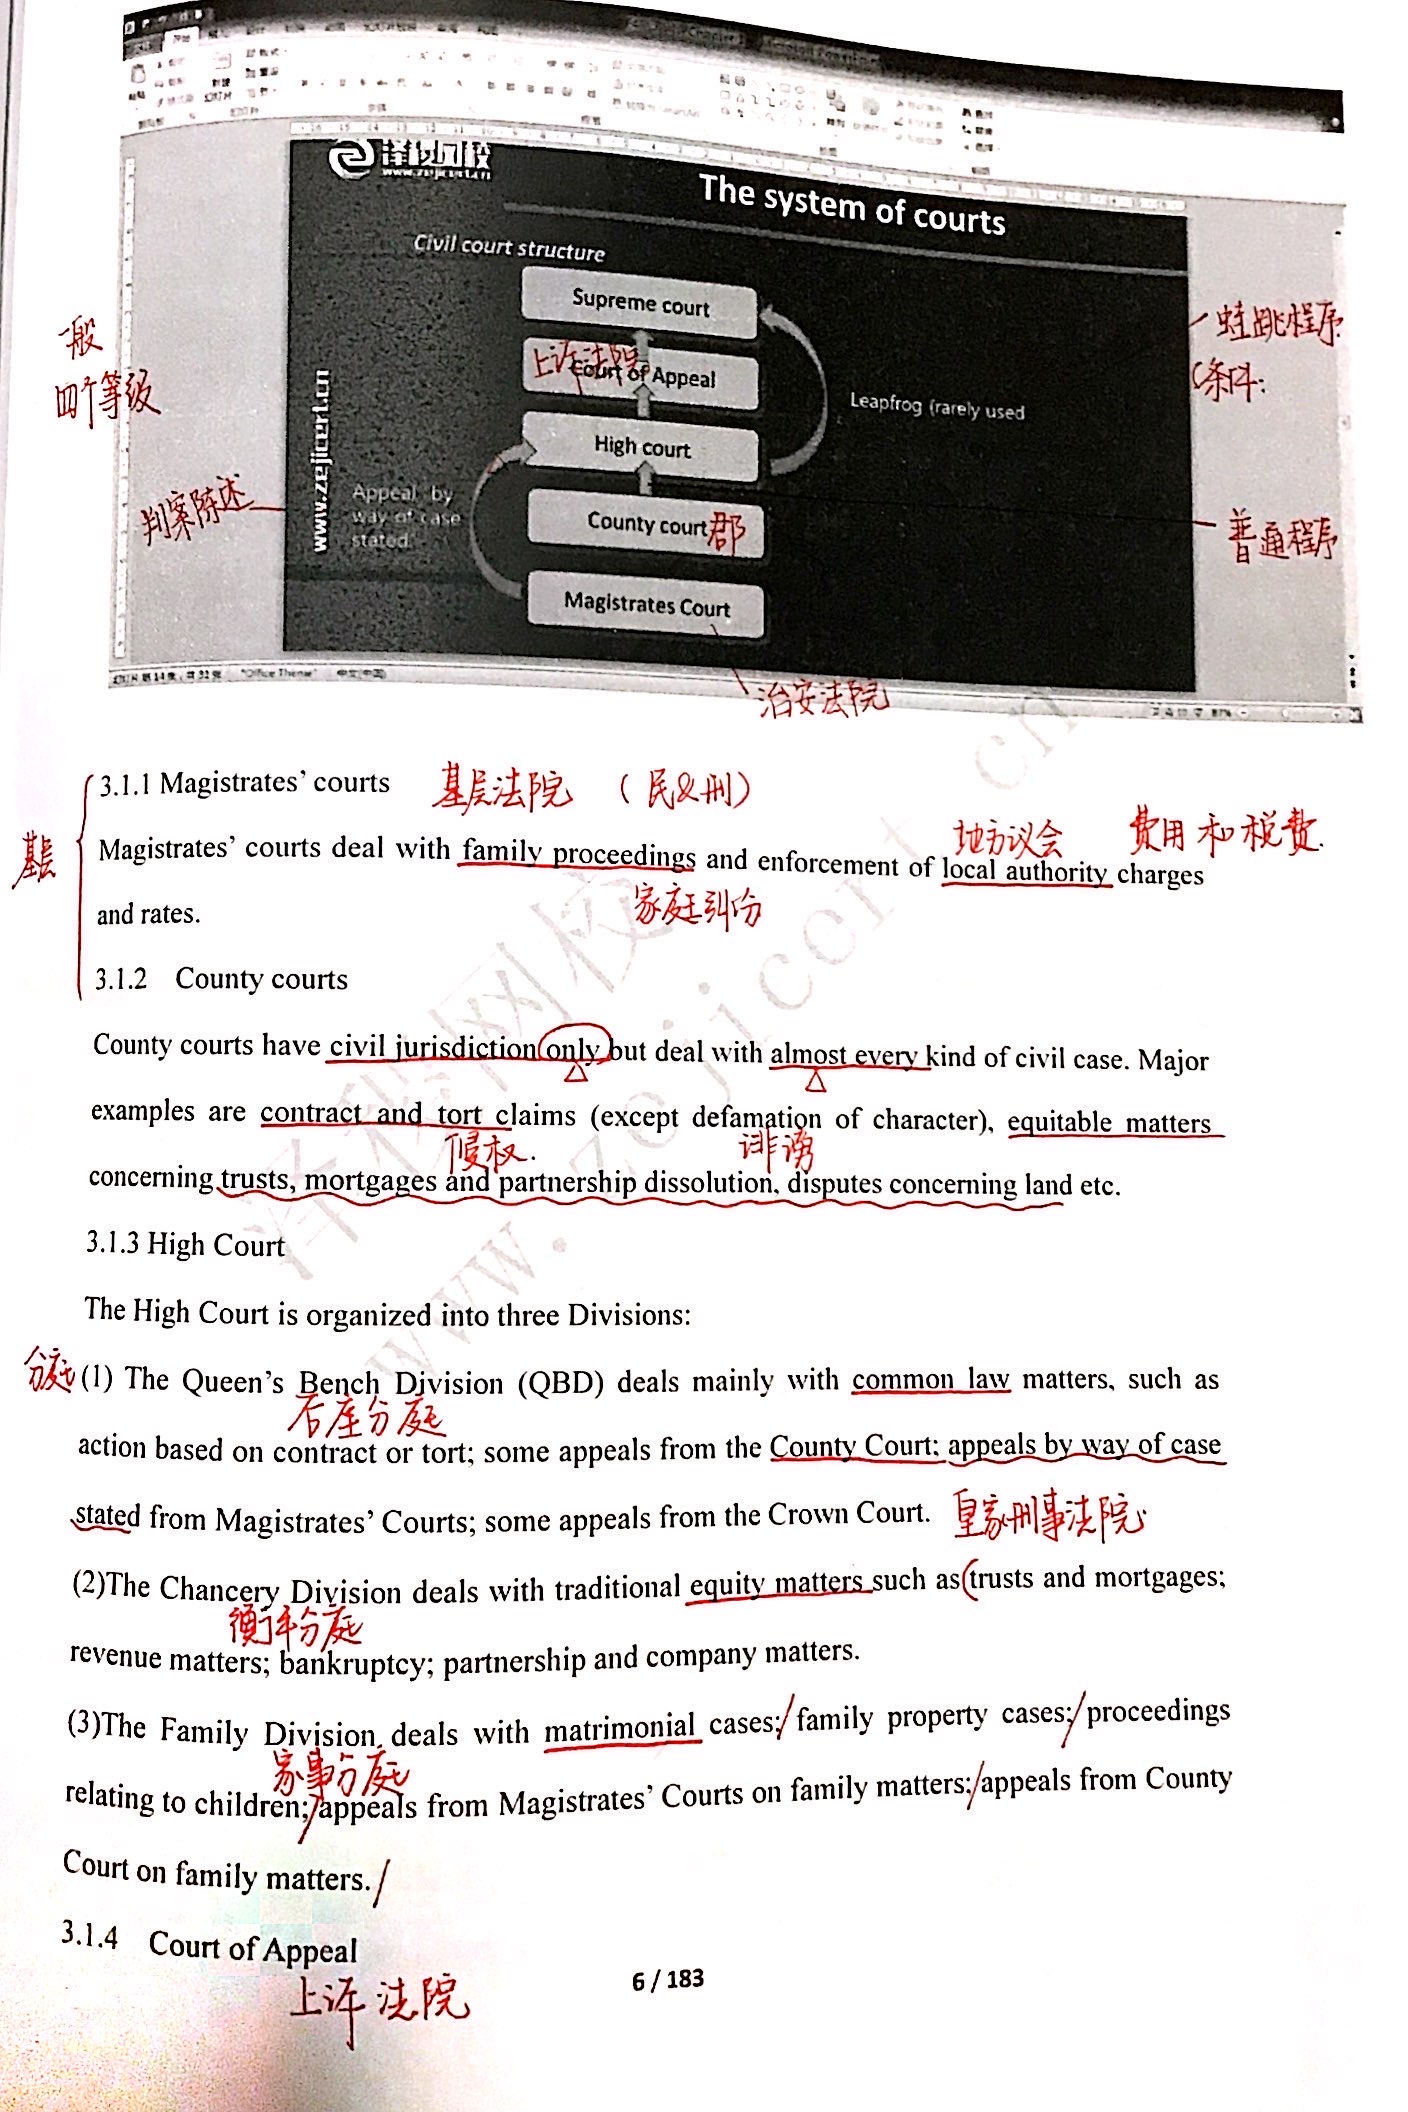 泽稷网校
www.zejicert.cn
The system of courts
Civil court structure
Supreme court
上诉法院
Court of Appeal
High court
County court 郡
Magistrates Court
Leapfrog (rarely used
Appeal by
way of case
stated
www.zejicert.cn
一般
四个等级
判案陈述
蛙跳程序
条件:
普通程序
治安法院
"Office Theme"
3.1.1 Magistrates’ courts 基层法院 (民&刑)
基层
地方议会 费用和税费.
Magistrates’ courts deal with family proceedings and enforcement of local authority charges
家庭纠纷
and rates.
3.1.2 County courts
County courts have civil jurisdiction only but deal with almost every kind of civil case. Major
examples are contract and tort claims (except defamation of character), equitable matters
侵权. 诽谤
concerning trusts, mortgages and partnership dissolution, disputes concerning land etc.
3.1.3 High Court
The High Court is organized into three Divisions:
分庭 (1) The Queen’s Bench Division (QBD) deals mainly with common law matters, such as
后座分庭
action based on contract or tort; some appeals from the County Court; appeals by way of case
stated from Magistrates’ Courts; some appeals from the Crown Court. 皇家刑事法院
(2)The Chancery Division deals with traditional equity matters such as trusts and mortgages;
衡平分庭
revenue matters; bankruptcy; partnership and company matters.
(3)The Family Division deals with matrimonial cases; family property cases; proceedings
家事分庭
relating to children; appeals from Magistrates’ Courts on family matters; appeals from County
Court on family matters.
3.1.4 Court of Appeal
上诉法院
6 / 183
泽稷网校
www.zejicert.cn